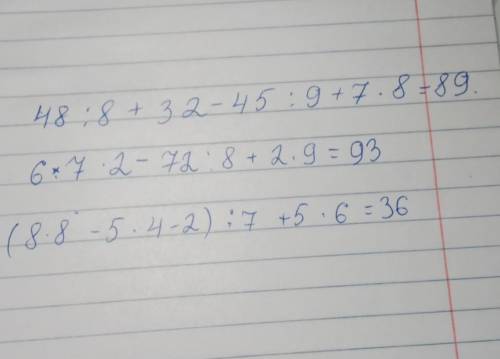 48 : 8 + 32 - 45 : 9 + 7 · 8 = 89.
6 * 7 · 2 - 72 : 8 + 2 · 9 = 93
(8 · 8 - 5 · 4 - 2) : 7 + 5 · 6 = 36